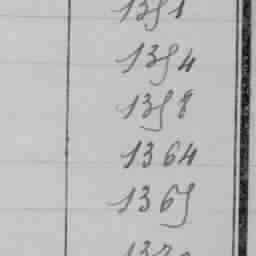 1351
1354
1358
1364
1365